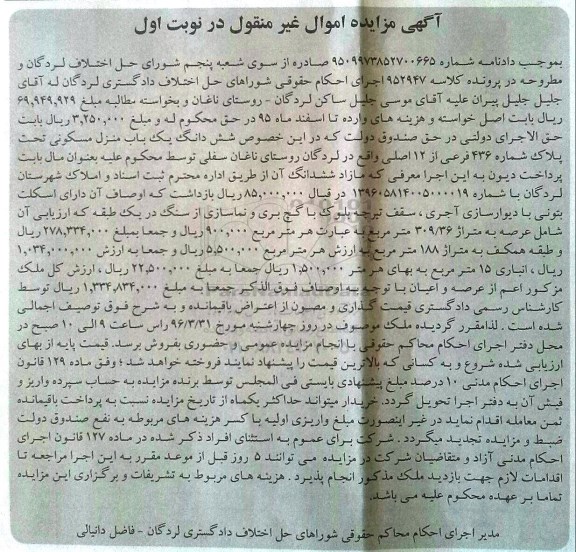 آگهی مزایده اموال غیر منقول در نوبت اول
بموجب دادنامه شماره ۹۵۰۹۹۷۳۸۵۲۷۰۰۶۶۵ صادره از سوی شعبه پنجم شورای حل اختلاف لردگان و
مطروحه در پرونده کلاسه ۹۵۲۹۴۷ اجرای احکام حقوقی شوراهای حل اختلاف دادگستری لردگان له آقای
جلیل جلیل پیران علیه آقای موسی جلیل ساکن لردگان - روستای ناغان و بخواسته مطالبه مبلغ ۶۹,۹۴۹,۹۲۹
ریال بابت اصل خواسته و هزینه های وارده تا اسفند ماه ۹۵ در حق محکوم له و مبلغ ۳,۲۵۰,۰۰۰ ریال بابت
حق الاجرای دولتی در حق صندوق دولت که در این خصوص شش دانگ یک باب منزل مسکونی تحت
پلاک شماره ۴۳۶ فرعی از ۱۲ اصلی واقع در لردگان روستای ناغان سفلی توسط محکوم علیه بعنوان مال بابت
پرداخت دیون به این اجرا معرفی که مازاد ششدانگ آن از طریق اداره محترم ثبت اسناد و املاک شهرستان
لردگان با شماره ۱۳۹۶۰۵۸۱۴۰۰۵۰۰۰۰۱۹ در قبال ۸۵,۰۰۰,۰۰۰ ریال بازداشت که اوصاف آن دارای اسکلت
بتونی با دیوارسازی آجری ، سقف تیرچه بلوک با گچ بری و نماسازی از سنگ در یک طبقه که ارزیابی آن
شامل عرصه به متراژ ۳۰۹/۳۶ متر مربع به عبارت هر متر مربع ۹۰۰,۰۰۰ ریال و جمعا بمبلغ ۲۷۸,۳۳۴,۰۰۰ ریال
و طبقه همکف به متراژ ۱۸۸ متر مربع به ارزش هر متر مربع ۵,۵۰۰,۰۰۰ ریال و جمعا به ارزش ۱,۰۳۴,۰۰۰,۰۰۰
ریال ، انباری ۱۵ متر مربع به بهای هر متر ۱,۵۰۰,۰۰۰ ریال جمعا به مبلغ ۲۲,۵۰۰,۰۰۰ ریال ، ارزش کل ملک
مزکور اعم از عرصه و اعیان با توجه به اوصاف فوق الذکر جمعا به مبلغ ۱,۳۳۴,۸۳۴,۰۰۰ ریال توسط
کارشناس رسمی دادگستری قیمت گذاری و مصون از اعتراض باقیمانده و به شرح فوق توصیف اجمالی
شده است . لذا مقرر گردیده ملک موصوف در روز چهارشنبه مورخ ۹۶/۳/۳۱ راس ساعت ۹ الی ۱۰ صبح در
محل دفتر اجرای احکام محاکم حقوقی با انجام مزایده عمومی و حضوری بفروش برسد. قیمت پایه از بهای
ارزیابی شده شروع و به کسانی که بالاترین قیمت را پیشنهاد نمایند فروخته خواهد شد ؛ وفق ماده ۱۲۹ قانون
اجرای احکام مدنی ۱۰ درصد مبلغ پیشنهادی بایستی فی المجلس توسط برنده مزایده به حساب سپرده واریز و
فیش آن به دفتر اجرا تحویل گردد. خریدار میتواند حداکثر یکماه از تاریخ مزایده نسبت به پرداخت باقیمانده
ثمن معامله اقدام نماید در غیر اینصورت مبلغ واریزی اولیه با کسر هزینه های مربوطه به نفع صندوق دولت
ضبط و مزایده تجدید میگردد . شرکت برای عموم به استثنای افراد ذکر شده در ماده ۱۲۷ قانون اجرای
احکام مدنی آزاد و متقاضیان شرکت در مزایده می توانند ۵ روز قبل از موعد مقرر به این اجرا مراجعه تا
اقدامات لازم جهت بازدید ملک مذکور انجام پذیرد . هزینه های مربوط به تشریفات و برگزاری این مزایده
تماما بر عهده محکوم علیه می باشد.
مدیر اجرای احکام محاکم حقوقی شوراهای حل اختلاف دادگستری لردگان - فاضل دانیالی